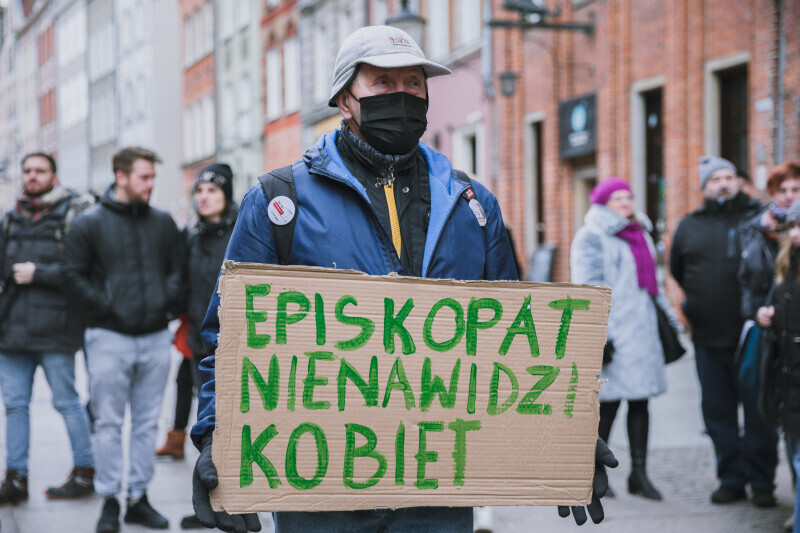 EPISKOPAT
NIENAWIDZI
KOBIET